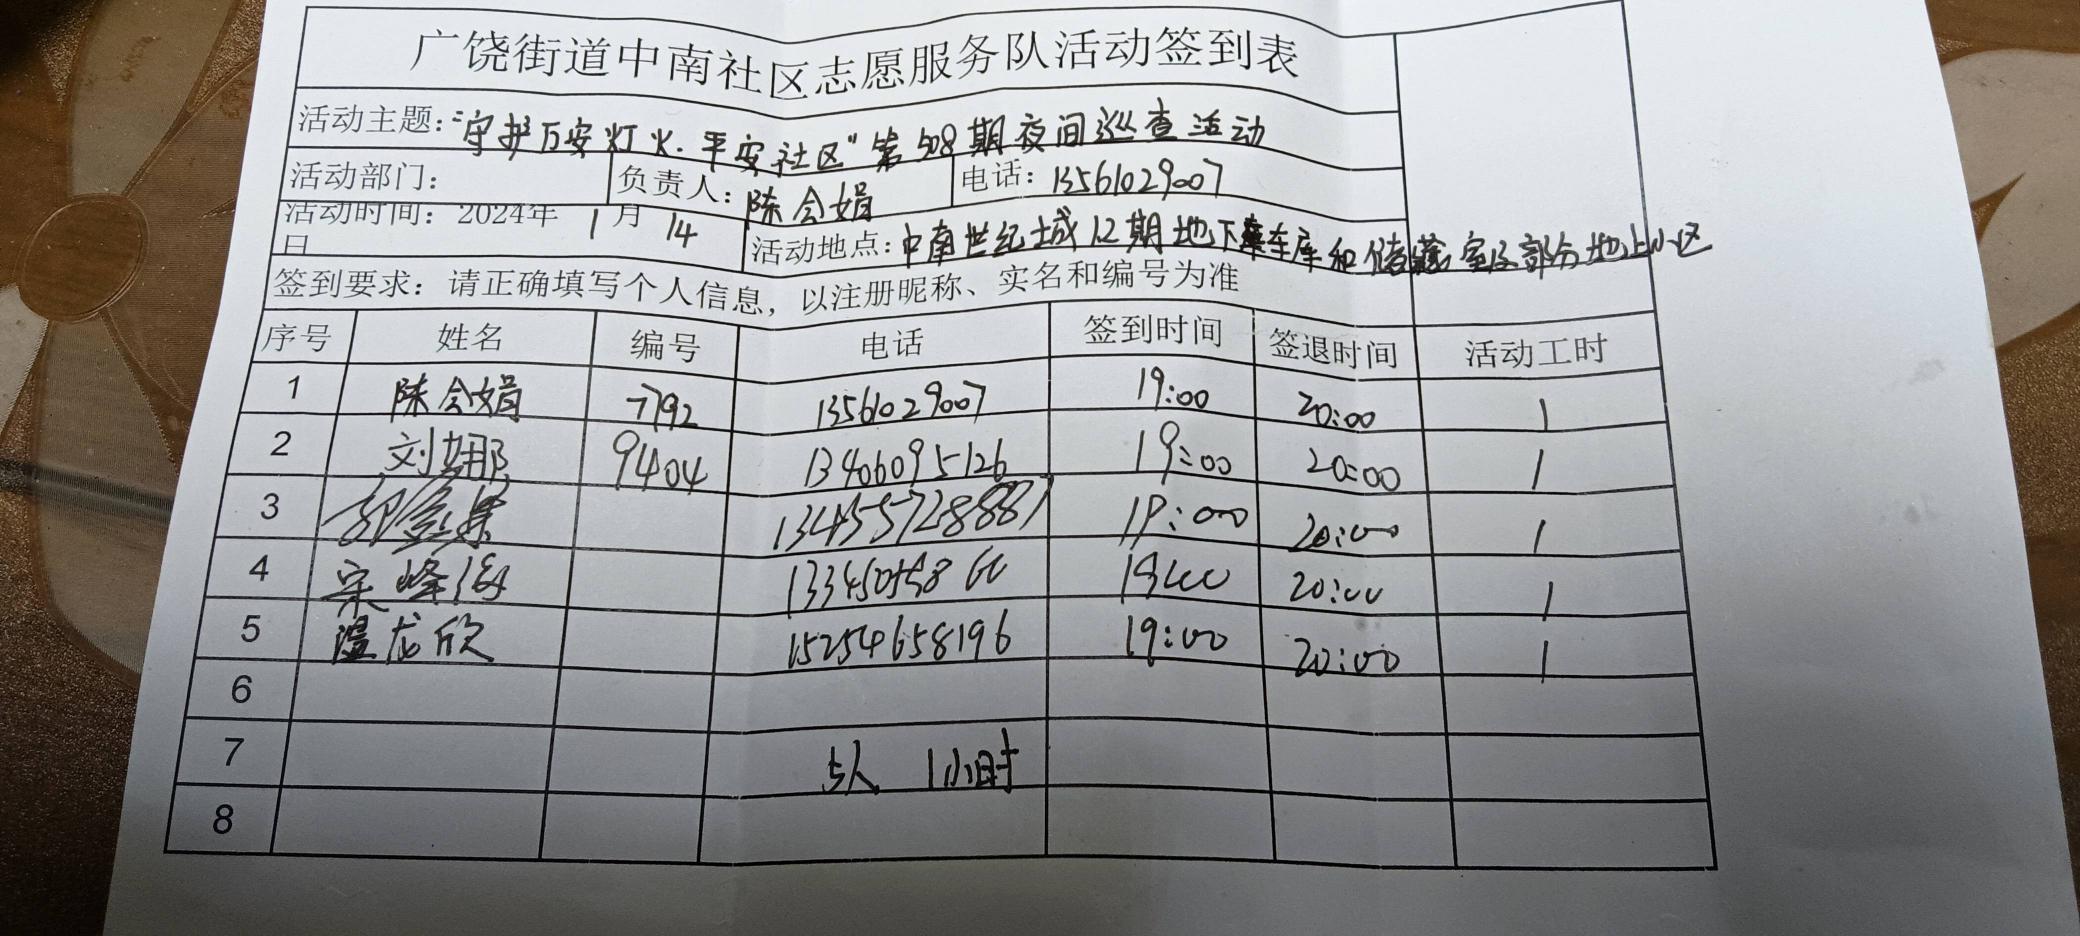 广饶街道中南社区志愿服务队活动签到表
活动主题：“守护万安灯火.平安社区”第508期夜间巡查活动
活动部门： 负责人：陈会娟 电话：13561029007
活动时间：2024年1月14日 活动地点：中南世纪城12期地下车库和储藏室及部分地上小区
签到要求：请正确填写个人信息，以注册昵称、实名和编号为准
序号 姓名 编号 电话 签到时间 签退时间 活动工时
1 陈会娟 7792 13561029007 19:00 20:00 1
2 刘娜 9404 13406095126 19:00 20:00 1
3 19:00 20:00 1
4 宋峰 19:00 20:00 1
5 温龙欣 15254658196 19:00 20:00 1
6
7 5人 1小时
8